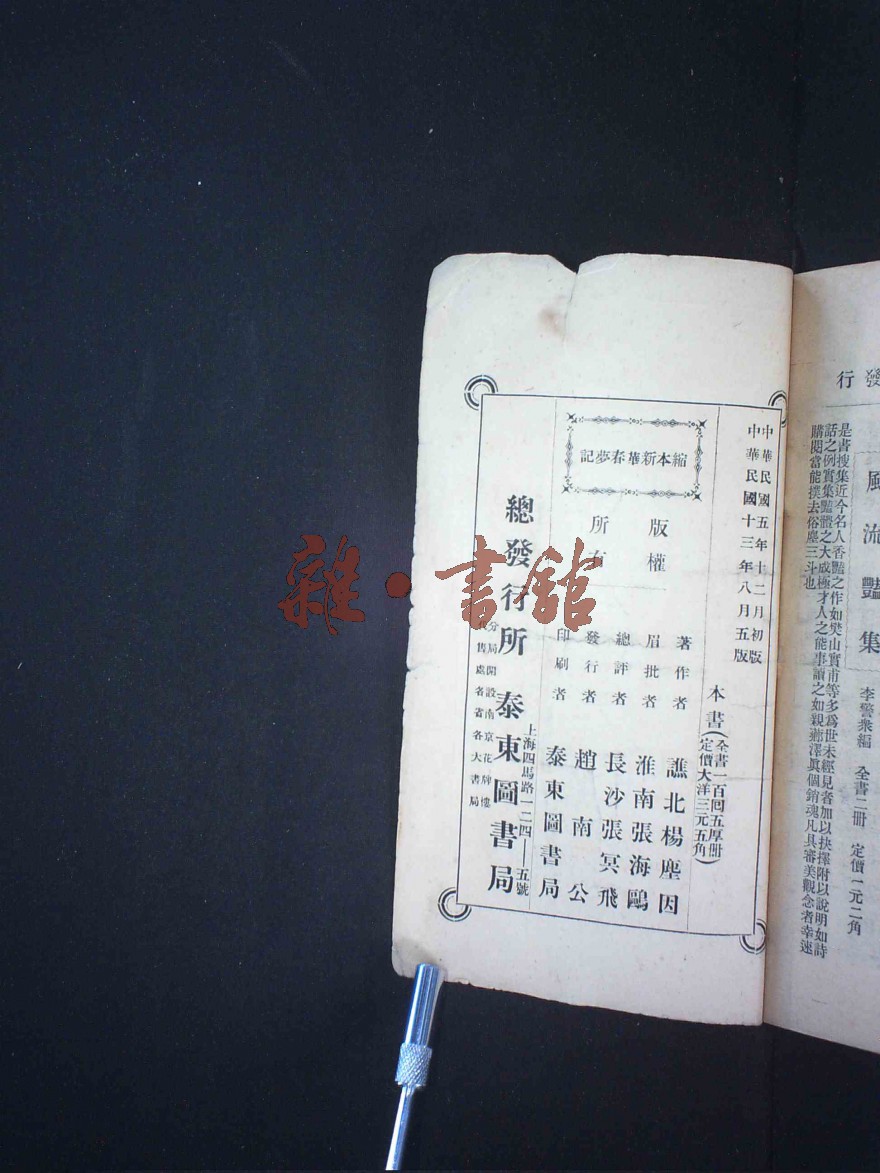 發行
風流豔集
李警衆編　全書二冊　定價一元二角
是書搜集近今名人香豔之作如樊山實甫等多爲世未經見者加以抉擇附以說明如詩
話之例實集豔體之大成極才人之能事讀之如親薌澤眞個銷魂凡具審美觀念者幸速
購閱當能撲去俗塵三斗也
中華民國五年十二月初版
中華民國十三年八月五版
本書(全書一百回五厚冊
定價大洋三元五角)
縮本新華春夢記
版權
所有
著作者　譙北楊塵因
眉批者　淮南張海鷗
總評者　長沙張冥飛
發行者　趙南公
印刷者　泰東圖書局
上海四馬路一二四——五號
總發行所　泰東圖書局
分局開設南京花牌樓
代售處各省各大書局
雜·書館